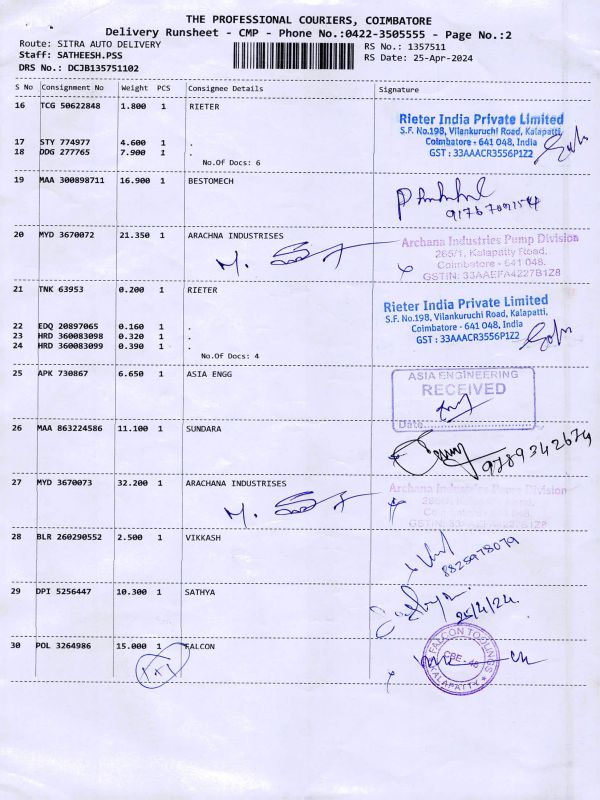 THE PROFESSIONAL COURIERS, COIMBATORE
Delivery Runsheet - CMP - Phone No.:0422-3505555 - Page No.:2
Route: SITRA AUTO DELIVERY
RS No.: 1357511
Staff: SATHEESH.PSS
RS Date: 25-Apr-2024
DRS No.: DCJB135751102
S No Consignment No Weight PCS Consignee Details Signature
16 TCG 50622848 1.800 1 RIETER
Rieter India Private Limited
S.F. No.198, Vilankuruchi Road, Kalapatti,
Coimbatore - 641 048, India
GST : 33AAACR3556P1Z2
17 STY 774977 4.600 1 .
18 DDG 277765 7.900 1 .
No.Of Docs: 6
19 MAA 300898711 16.900 1 BESTOMECH
20 MYD 3670072 21.350 1 ARACHNA INDUSTRISES
Archana Industries Pump Division
265/1, Kalapatty Road,
Coimbatore - 641 048.
GSTIN: 33AAEFA4227B1Z8
21 TNK 63953 0.200 1 RIETER
Rieter India Private Limited
S.F. No.198, Vilankuruchi Road, Kalapatti,
Coimbatore - 641 048, India
GST : 33AAACR3556P1Z2
22 EDQ 20897065 0.160 1 .
23 HRD 360083098 0.320 1 .
24 HRD 360083099 0.390 1 .
No.Of Docs: 4
25 APK 730867 6.650 1 ASIA ENGG
ASIA ENGINEERING
RECEIVED
Date
26 MAA 863224586 11.100 1 SUNDARA
9789342674
27 MYD 3670073 32.200 1 ARACHANA INDUSTRISES
Archana Industries Pump Division
28 BLR 260290552 2.500 1 VIKKASH
8825978079
29 DPI 5256447 10.300 1 SATHYA
25/4/24
30 POL 3264986 15.000 1 FALCON
FALCON TOOLINGS
CBE - 48
KALAPATTY